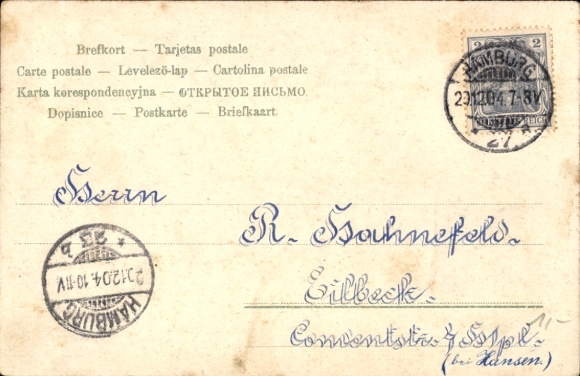 Brefkort — Tarjetas postale
Carte postale — Levelező-lap — Cartolina postale
Karta korespondencyjna — ОТКРЫТОЕ ПИСЬМО.
Dopisnice — Postkarte — Briefkaart.
2 2
HAMBURG
20.12.04.7-8V.
* 27
Herrn
R. Hahnefeld.
Eilbeck.
(bei Hansen.)
HAMBURG
20.12.04.10-11V.
* 23 b